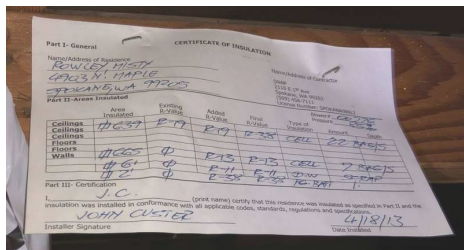 Part I- General
CERTIFICATE OF INSULATION
Name/Address of Residence
ROWLEY MISTY
4903 N. MAPLE
SPOKANE, WA 99205
Name/Address of Contractor
SNAP
Spokane, WA
Part II-Areas Insulated
Area Insulated Existing R-Value Added R-Value Final R-Value Type of Insulation Amount
Ceilings #637 R-19 R-19 R-38 CELL 22 BAGS
Ceilings
Ceilings
Floors
Floors
Walls #665 Φ R-13 R-13 CELL BAGS
Φ R-11 R-11
Φ R-38 R-38
Part III- Certification
I, J.C. (print name) certify that this residence was insulated as specified in Part II and the
insulation was installed in conformance with all applicable codes, standards, regulations and specifications.
JOHN CUSTER 4/18/13
Installer Signature Date Installed